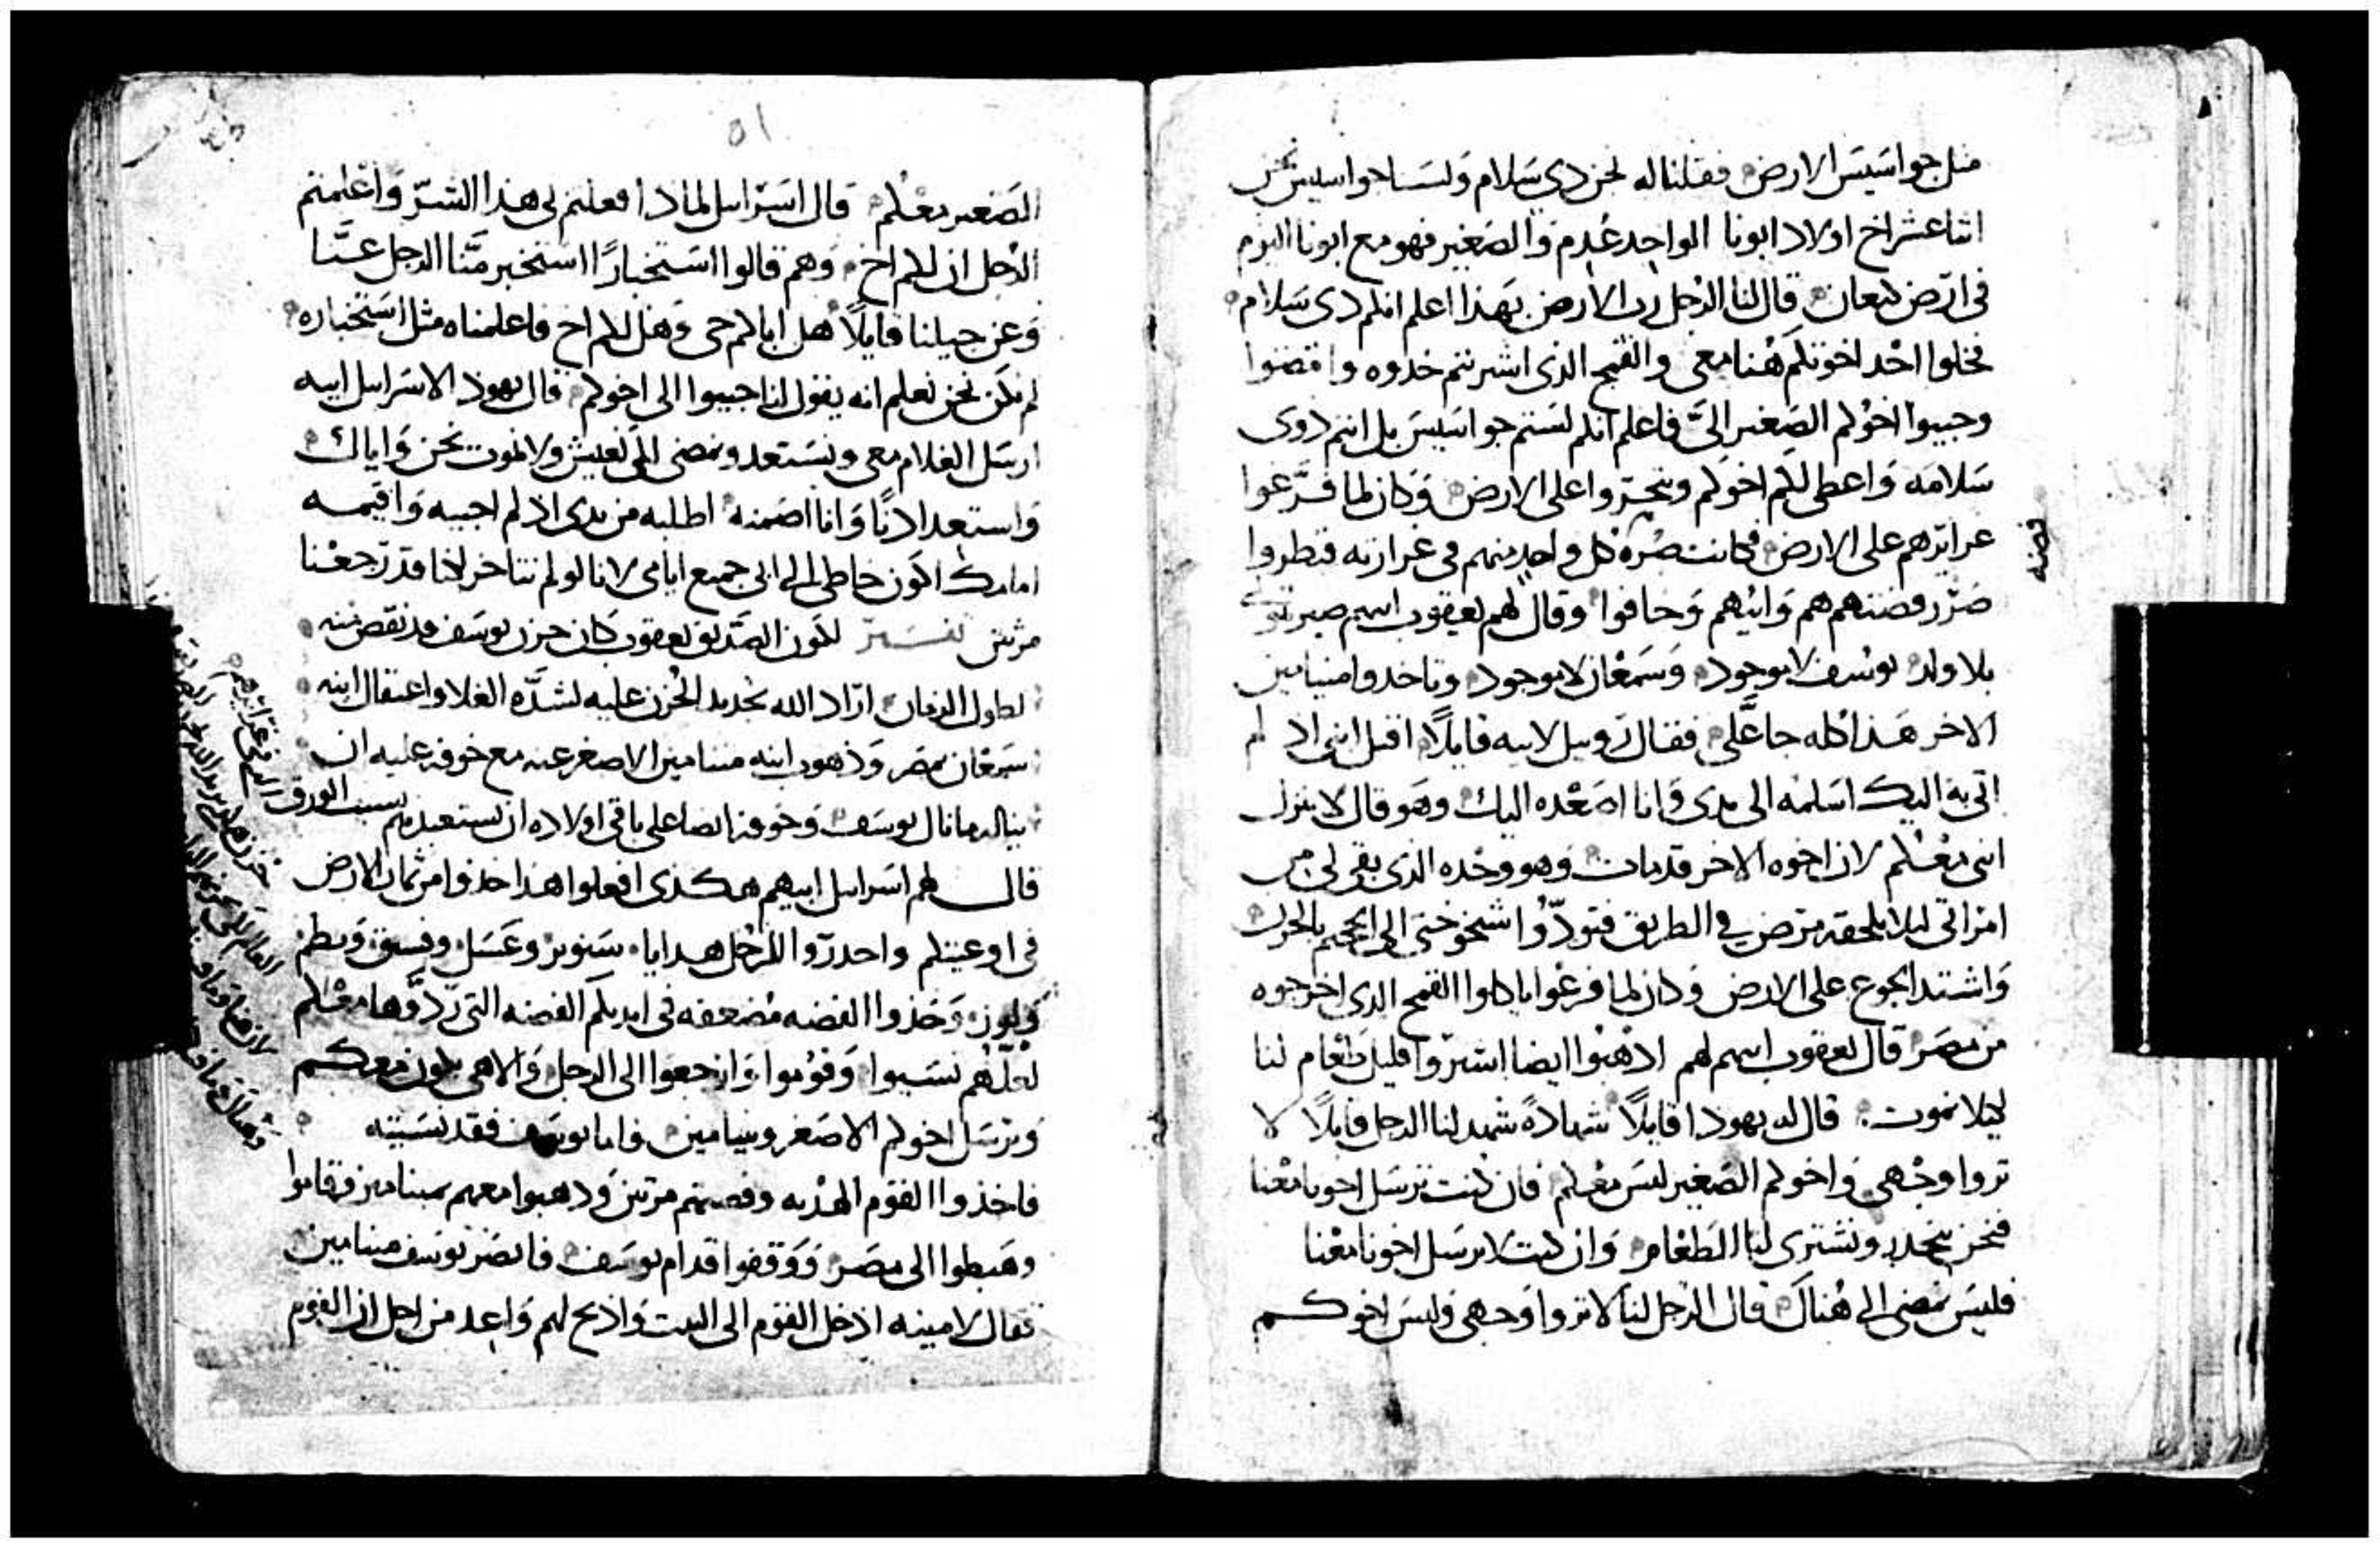 مثل جواسيس الارض فقلنا له نحن دى سلام ولسنا جواسيس نحن
اثنا عشر اخ اولاد ابونا الواحد عدم والصغير فهو مع ابونا اليوم
فى ارض كنعان قال لنا الرجل رب الارض بهذا اعلم انكم دى سلام
فخلوا احد اخوتكم هنا معى والقمح الذى اشريتم خدوه وامضوا
وجيبوا اخوكم الصغير الىَّ فاعلم انكم لستم جواسيس بل انتم ذوى
سلامه واعطى لكم اخوكم وتتجروا على الارض وكان لما فرَّغوا
غرايرهم على الارض فكانت صُرة كل واحد منهم فى غرارته فنظروا
صرر فضتهم هم وابيهم وخافوا وقال لهم يعقوب ابيهم صيرتونى
بلا ولد يوسف لا موجود وسمعان لا موجود وتاخدوا منيامين
الاخر هذا كله جا علَّى فقال روبيل لابيه قايلاً اقتل ابنى اذ لم
اتى به اليك اسلمه الى يدى وانا اصعده اليك وهو قال لا ينزل
ابنى معكم لان اخوه الاخر قد مات وهو وحده الذى بقى لى من
امراتى ليلا يلحقه مرض فى الطريق فتودُّوا شيخوختى الى الجحيم بالحزن
واشتد الجوع على الارض وكان لما فرغوا ياكلوا القمح الدى اخرجوه
من مصر قال يعقوب ابيهم لهم اذهبوا ايضا اشتروا قليل طعام لنا
ليلا نموت قال له يهودا قايلاً شهادةً شهد لنا الرجل قايلاً لا
تروا وجهى واخوكم الصغير ليس معكم فان كنت ترسل اخونا معنا
فنحن ننحدر ونشترى لنا الطعام وان كنت لا ترسل اخونا معنا
فليس نمضى الى هناك قال الرجل لنا لا تروا وجهى وليس اخوكم
فضه
٥١
الصغير معكم قال اسراييل لماذا فعلتم بى هذا الشر واعلمتم
الرجل ان لكم اخ وهم قالوا استخبارًا استخبر منَّا الرجل عنَّا
وعن جيلنا قايلاً هل اباكم حى وهل لكم اخ فاعلمناه مثل استخباره
لم نكن نحن نعلم انه يقول لنا جيبوا الى اخوكم قال يهودا لاسراييل ابيه
ارسل الغلام معى ونستعد ونمضى لكى نعيش ولا نموت نحن واياك
واستعدادنا وانا اضمنه اطلبه من يدى اذ لم اجيبه واقيمه
امامك اكون خاطى الى ابى جميع ايامى لانا لو لم نتاخر لكنا قد رجعنا
مرتين تفسير لكون الصديق يعقوب كان حزن يوسف قد نقص منه
لطول الزمان اراد الله تجديد الحزن عليه لشدَّه الغلا واعتقال ابنه
سمعان بمصر وذهوب ابنه منيامين الاصغر عنه مع خوفه عليه ان
يناله ما نال يوسف وخوفه ايضا على باقى اولاده ان يستعبدهم بسبب الورق الذى فى غرايرهم
قال لهم اسراييل ابيهم هكذى افعلوا هذا خذوا من ثمار الارض
فى اوعيتكم واحدروا للرجل هدايا صنوبر وعسل وفستق وبطم
ولوز وخذوا الفضه مُضعفه فى ايديكم الفضه التى ردُّوها معكم
لعلهم نسيوا وقوموا وارجعوا الى الرجل والاهى يكون معكم
ويرسل اخوكم الاصغر وبنيامين واما يوسف فقد نسيته
فاخذوا القوم الهديه وفضتهم مرتين وذهبوا معهم بمنيامين وقاموا
وهبطوا الى مصر ووقفوا قدام يوسف فابصر يوسف منيامين
فقال لامينه ادخل القوم الى البيت واذبح لهم واعد من اجل ان القوم